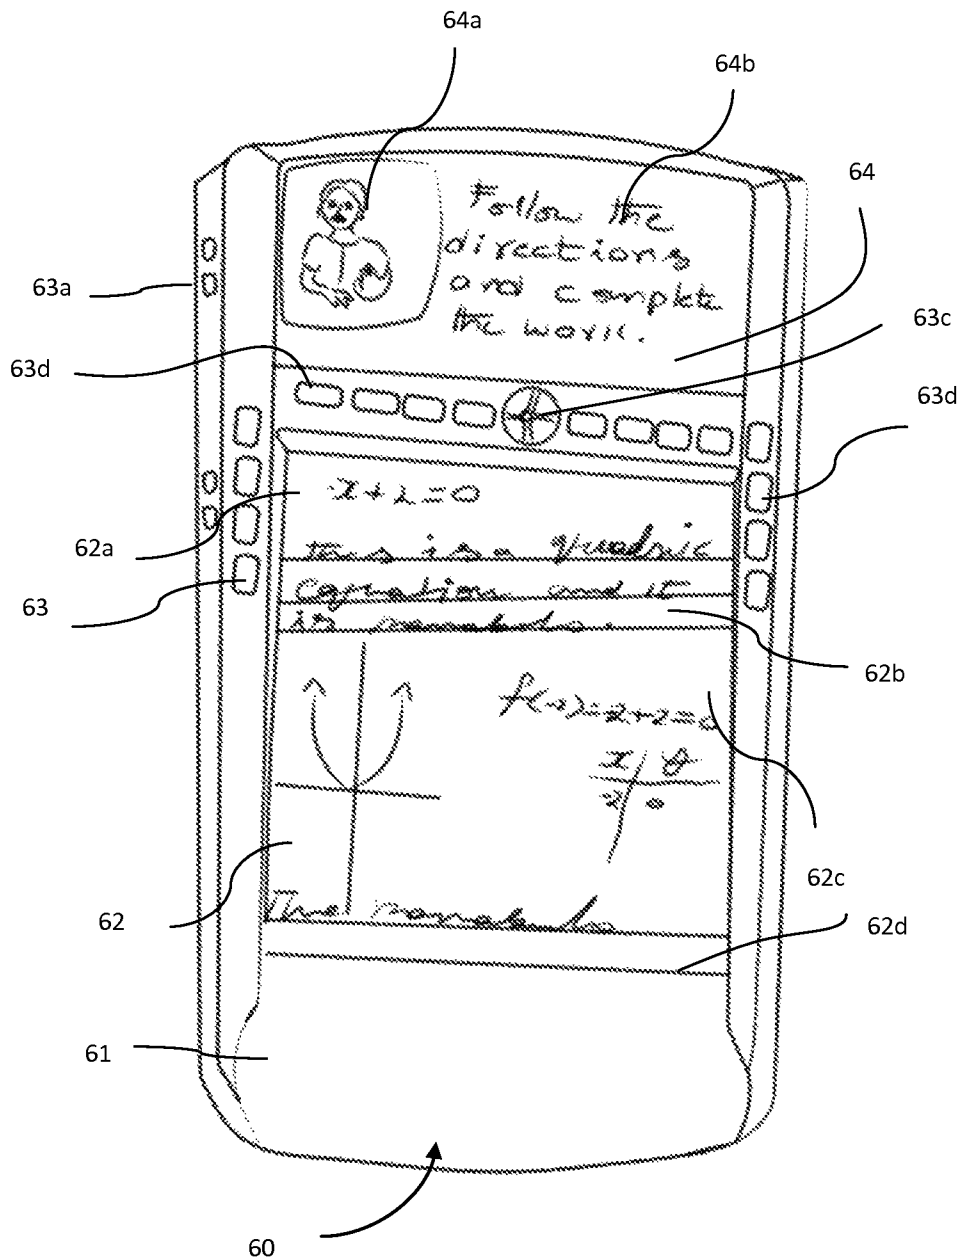 64a
64b
64
63a
63c
63d
63d
Follow the
directions
and complete
the work.
x+2=0
62a
this is a quadric
63
equation and it
is
62b
f(x)=2+2=0
x y
2 0
62c
62
The
62d
61
60